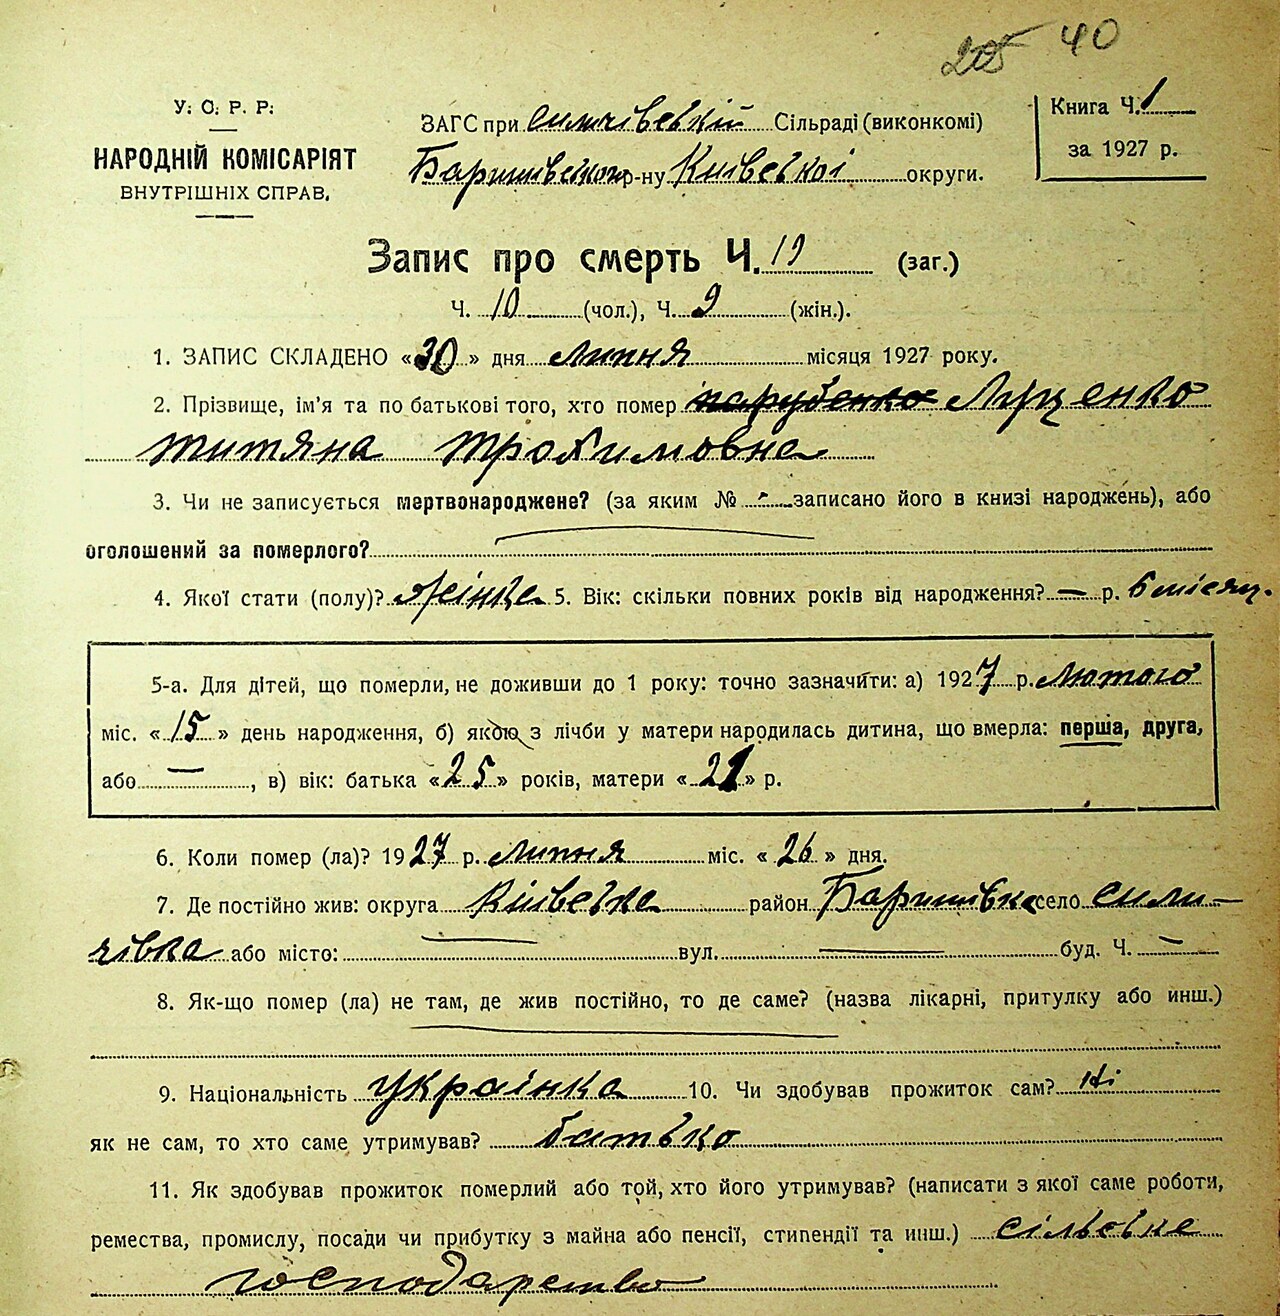 40
У. С. Р. Р.
НАРОДНІЙ КОМІСАРІЯТ
ВНУТРІШНІХ СПРАВ.
ЗАГС при Сулічівській Сільраді (виконкомі)
Баришівського р-ну Київської округи.
Книга Ч. 1
за 1927 р.
Запис про смерть Ч. 19 (заг.)
Ч. 10 (чол.), Ч. 9 (жін.).
1. ЗАПИС СКЛАДЕНО «30» дня липня місяця 1927 року.
2. Прізвище, ім'я та по батькові того, хто помер парубенко Луценко
титяна трохимовна
3. Чи не записується мертвонароджене? (за яким № - записано його в книзі народжень), або
оголошений за померлого?
4. Якої стати (полу)? жінка 5. Вік: скільки повних років від народження? — р. 6 місяц.
5-а. Для дітей, що померли, не доживши до 1 року: точно зазначити: а) 1927 р. Лютого
міс. «15» день народження, б) якою з лічби у матери народилась дитина, що вмерла: перша, друга,
або —, в) вік: батька «25» років, матери «21» р.
6. Коли помер (ла)? 1927 р. липня міс. «26» дня.
7. Де постійно жив: округа Київська район Баришівка село
або місто: — вул. — буд. Ч. —
8. Як-що помер (ла) не там, де жив постійно, то де саме? (назва лікарні, притулку або инш.)
9. Національність українка 10. Чи здобував прожиток сам? Ні
як не сам, то хто саме утримував? батько
11. Як здобував прожиток померлий або той, хто його утримував? (написати з якої саме роботи,
ремества, промислу, посади чи прибутку з майна або пенсії, стипендії та инш.) сільське
господарство